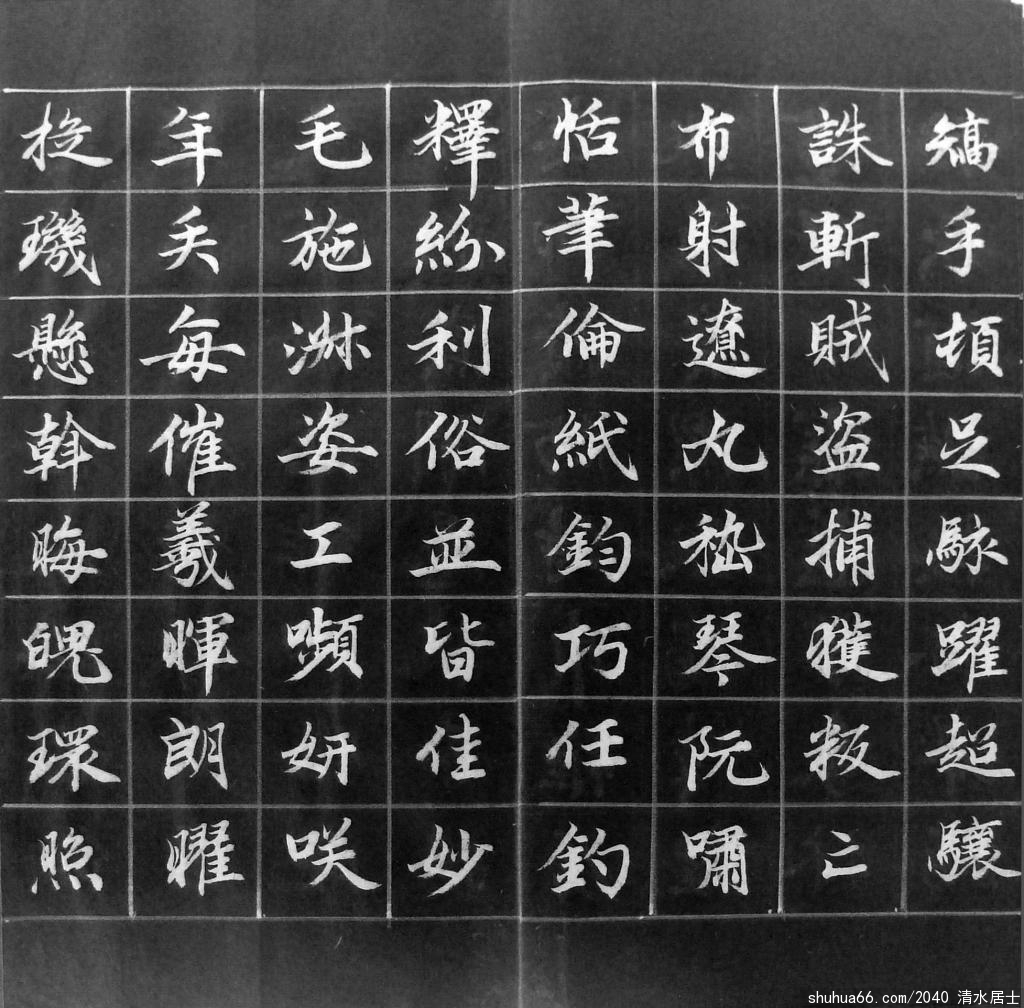 矯手頓足駭躍超驤
誅斬賊盜捕獲叛亡
布射遼丸嵇琴阮嘯
恬筆倫紙鈞巧任釣
釋紛利俗並皆佳妙
毛施淑姿工嚬妍咲
年矢每催羲暉朗曜
璣懸斡晦魄環照
shuhua66.com/2040 清水居士